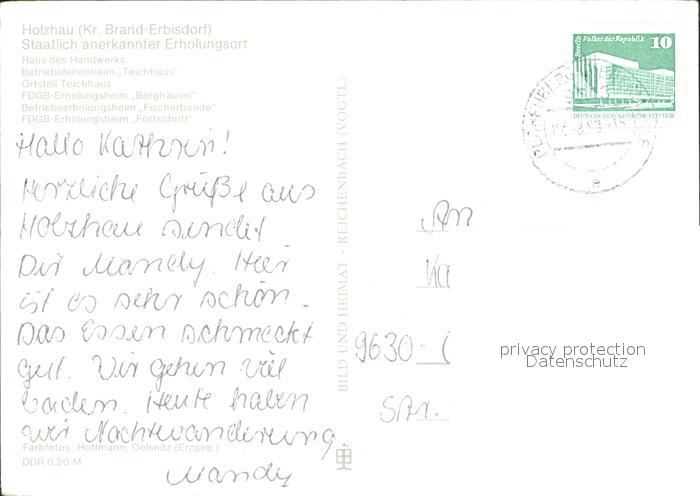 Holzhau (Kr. Brand-Erbisdorf)
Staatlich anerkannter Erholungsort
Haus des Handwerks
Betriebsferienheim „Teichhaus"
Ortsteil Teichhaus
FDGB-Erholungsheim „Berghäusel"
Betriebserholungsheim „Fischerbaude"
FDGB-Erholungsheim „Fortschritt"
Hallo Kathrin!
Herzliche Grüße aus
Holzhau sendet
Dir Mandy. Hier
ist es sehr schön.
Das Essen schmeckt
gut. Wir gehen viel
baden. Heute haben
wir Nachtwanderung.
Mandy
Farbfotos: Hoffmann, Oelsnitz (Erzgeb.)
DDR 0,20 M
BILD UND HEIMAT · REICHENBACH (VOGTL)
Berlin, Palast der Republik
10
DEUTSCHE DEMOKRATISCHE REPUBLIK
e
An
Ka
9630
Str.
privacy protection
Datenschutz